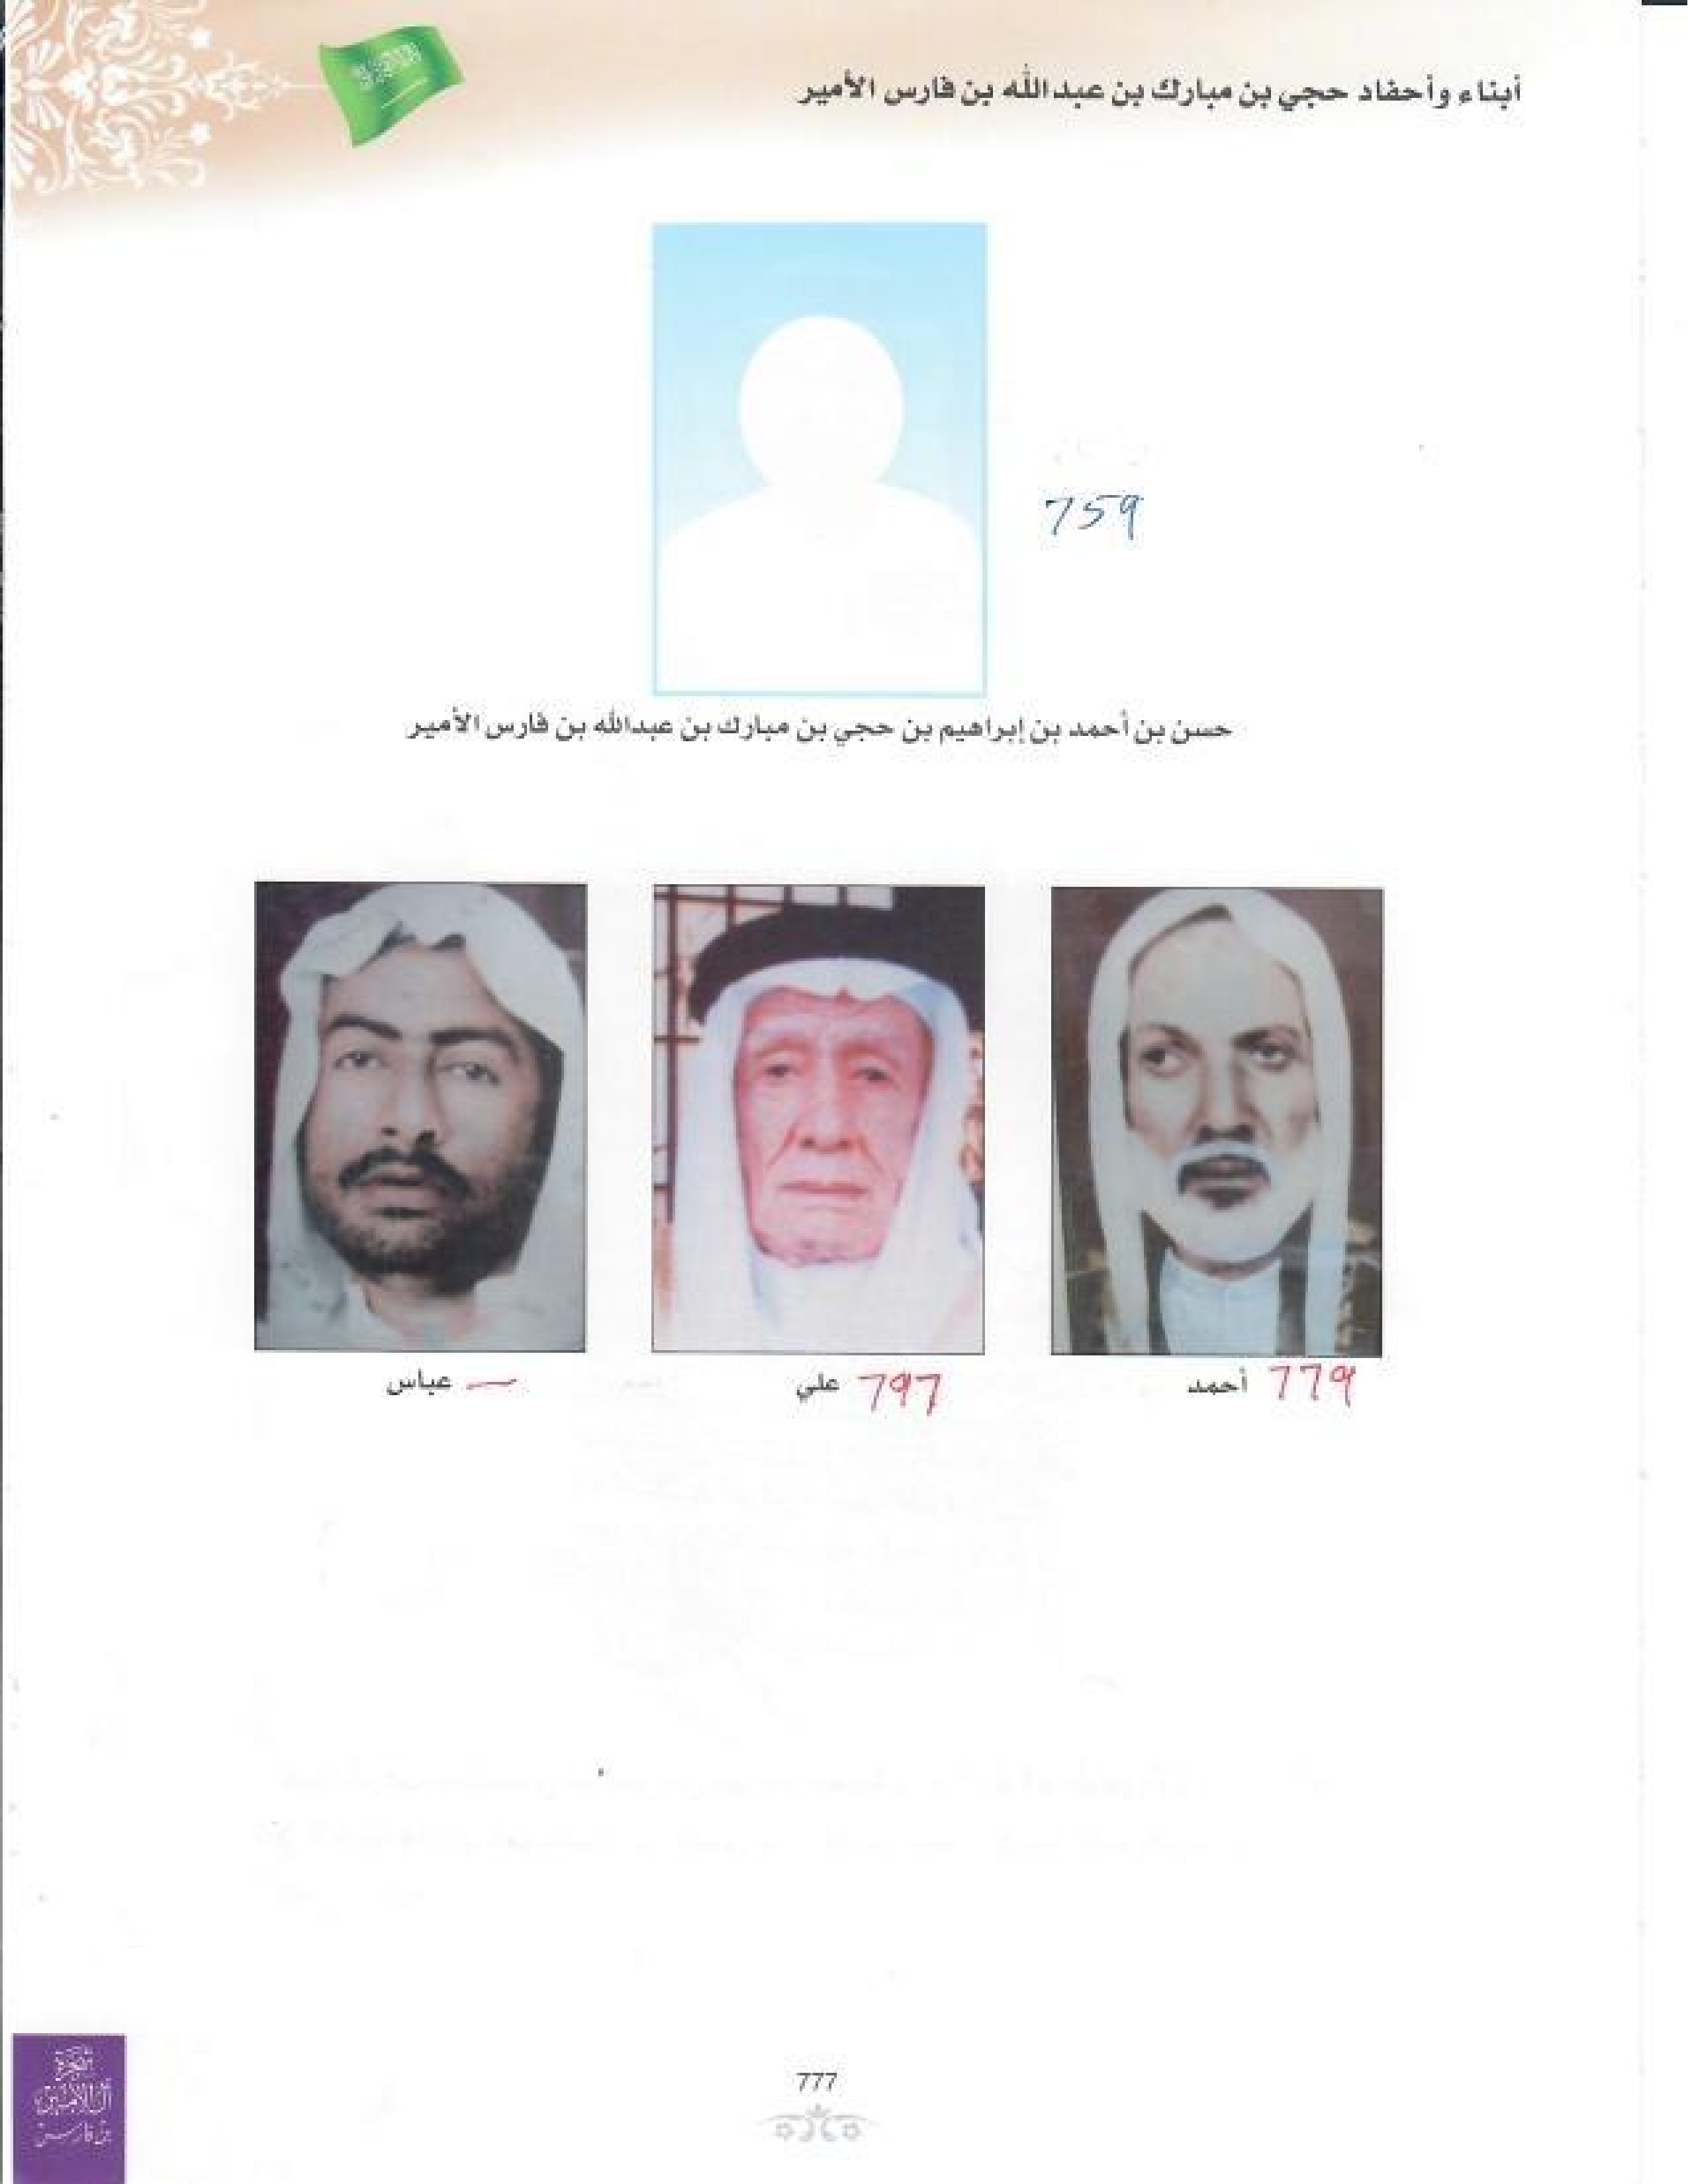 أبناء وأحفاد حجي بن مبارك بن عبدالله بن فارس الأمير
759
حسن بن أحمد بن إبراهيم بن حجي بن مبارك بن عبدالله بن فارس الأمير
779 أحمد
797 علي
— عباس
777
شجرة
آل الأمير
بن فارس